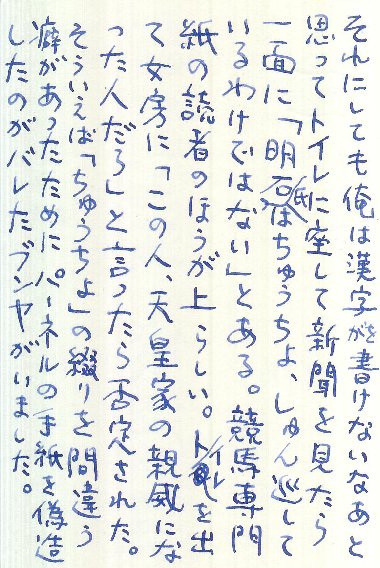 それにしても俺は漢字を書けないなあと
思ってトイレに座して新聞を見たら
一面に「明石氏はちゅうちょ、しゅん巡して
いるわけではない」とある。競馬専門
紙の読者のほうが上らしい。トイレを出
て女房に「この人、天皇家の親威にな
った人だろ」と言ったら否定された。
そういえば「ちゅうちょ」の綴りを間違う
癖があったためにパーネルの手紙を偽造
したのがバレたブンヤがいました。